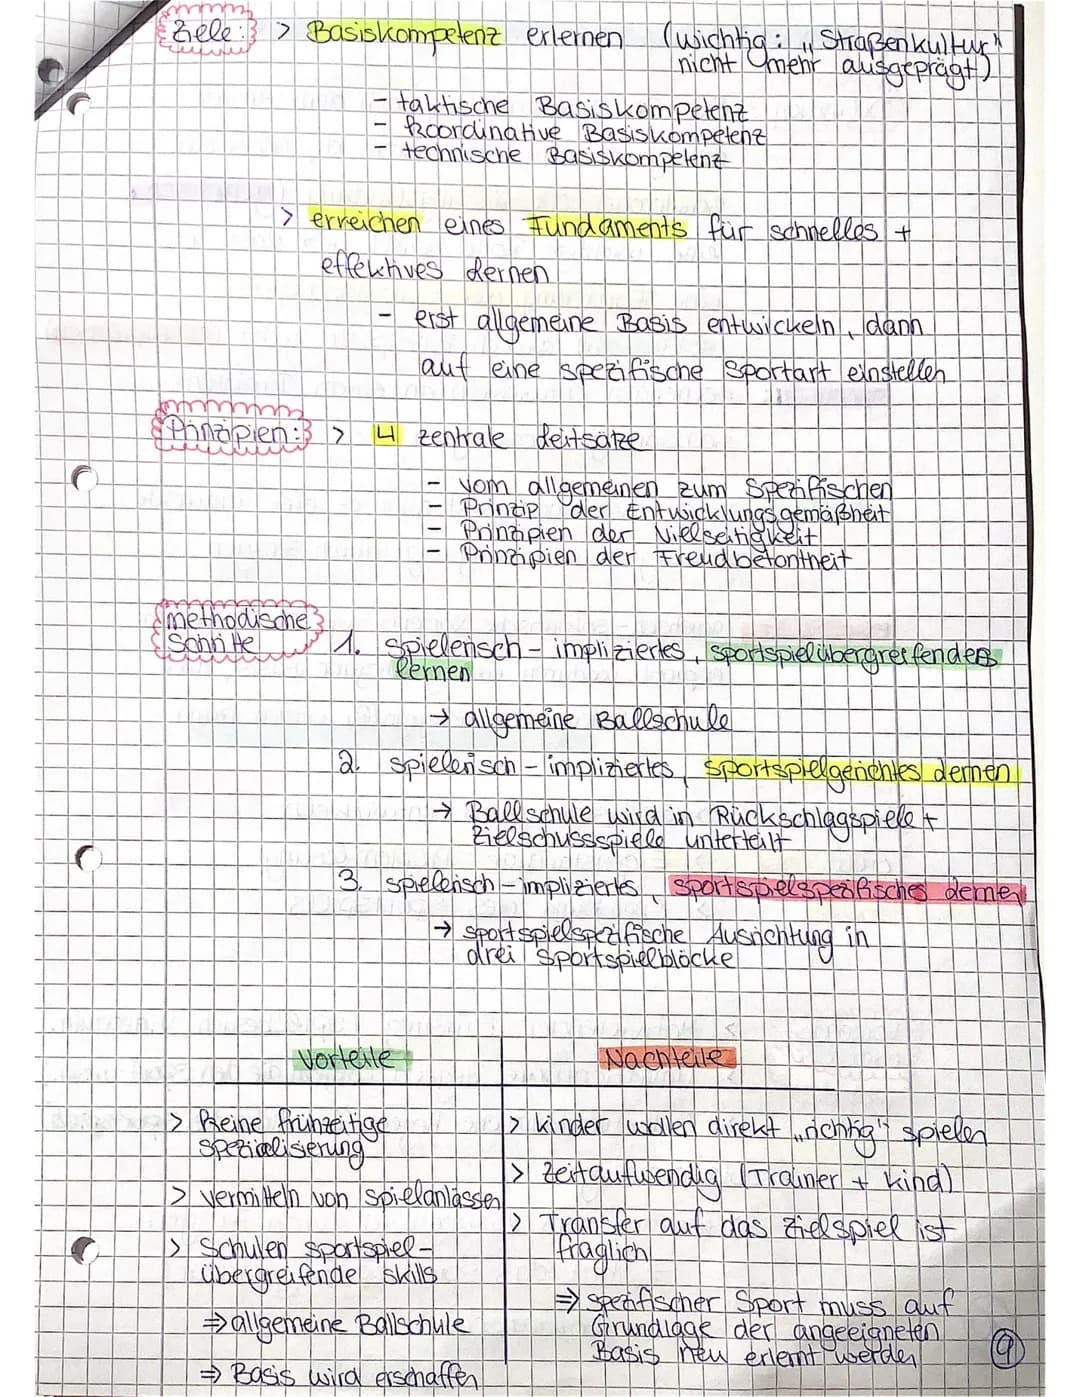 Ziele: > Basiskompetenz erlernen (wichtig: „Straßenkultur"
nicht mehr ausgeprägt)
- taktische Basiskompetenz
- koordinative Basiskompetenz
- technische Basiskompetenz
> erreichen eines Fundaments für schnelles +
effektives Lernen
- erst allgemeine Basis entwickeln, dann
auf eine spezifische Sportart einstellen
Prinzipien: > 4 zentrale Leitsätze
- vom allgemeinen zum Spezifischen
- Prinzip der Entwicklungsgemäßheit
- Prinzipien der Vielseitigkeit
- Prinzipien der Freudbetontheit
methodische
Schritte
1. spielerisch - impliziertes, sportspielübergreifendes
lernen
→ allgemeine Ballschule
2. spielerisch - impliziertes, sportspielgerichtes Lernen
→ Ballschule wird in Rückschlagspiele +
Zielschussspiele unterteilt
3. spielerisch - impliziertes, sportspielspezifisches Lernen
→ sportspielspezifische Ausrichtung in
drei Sportspielblöcke
Vorteile
> Keine frühzeitige
spezialisierung
> vermitteln von Spielanlässen
> Schulen sportspiel-
übergreifende skills
⇒ allgemeine Ballschule
⇒ Basis wird erschaffen
Nachteile
> kinder wollen direkt „richtig" spielen
> zeitaufwendig (Trainer + kind)
> Transfer auf das Zielspiel ist
fraglich
⇒ spezifischer Sport muss auf
Grundlage der angeeigneten
Basis neu erlernt werden
9